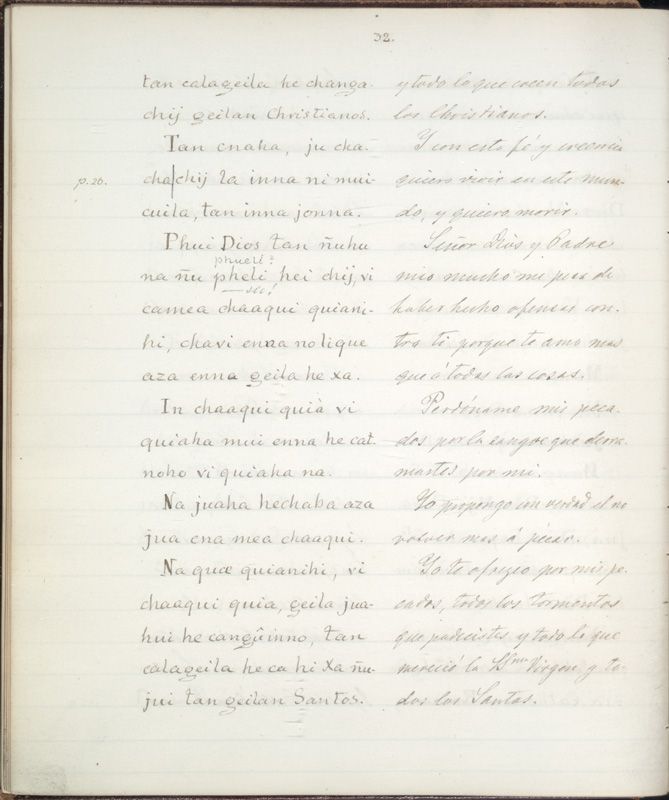 32.
tan calageila he changa-
chij geilan Christianos.
Tan cnaha, ju cha-
p. 26.
cha|chij la inna ni mui-
cuila, tan inna jonna.
Phui Dios tan ñuhu
phueli?
na ñu pheli hei chij, vi
sic!
camea chaaqui quiani-
hi, chavi enna nolique
aza enna geila he xa.
In chaaqui quià vi
quiaha mui enna he cat-
noho vi quiaha na.
Na juaha hechaba aza
jua cna mea chaaqui.
Na quæ quianihi, vi
chaaqui quia, geila jua-
hui he cangûinno, tan
calageila he ca hi xa ñu-
jui tan geilan Santos.
y todo lo que creen todos
los Christianos.
Y con esta fé y creencia
quiero vivir en este mun-
do, y quiero morir.
Señor Diòs y Padre
mio mucho me pesa de
haber hecho ofensas con-
tra ti porque te amo mas
que á todas las cosas.
Perdóname mis peca-
dos por la sangre que derra-
mastes por mi.
Yo propongo con verdad el no
volver mas á pècar.
Yo te ofrezco por mis pe-
cados, todos los tormentos
que padecistes y todo lo que
mereció la Sma Virgen y to-
dos los Santos.